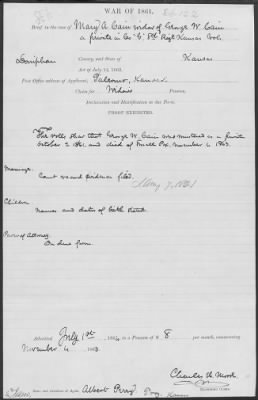 WAR OF 1861.
Brief in the case of Mary A. Cain widow of George W. Cain
a private in Co "C" 8th Regt Kansas Vols.
Doniphan County and State of Kansas
Act of July 14, 1862.
Post Office address of Applicant, Palermo, Kansas
Claim for Widow's Pension.
Declaration and Identification in due Form.
PROOF EXHIBITED.
show that George W. Cain was mustered as a private
October 2 1861 and died of Small Pox, November 4, 1863.
Marriage.
Court record evidence filed.
May 7, 1864
Children
Names and dates of birth stated
Power of Attorney.
In due form.
Admitted July 1st 186 , to a Pension of $ 8 per month, commencing
November 4, 1863.
Charles A. Mook
Examining Clerk.
Name and residence of Agent, Albert Perry, Troy, Kansas